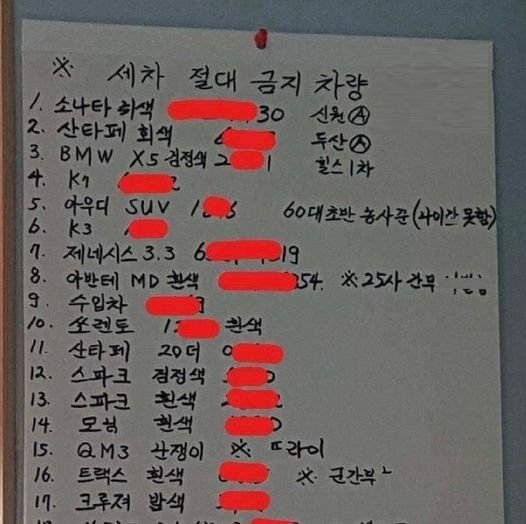 ※ 세차 절대 금지 차량
1. 소나타 회색 30 신원 Ⓐ
2. 산타페 회색 6 두산 Ⓐ
3. BMW X5 검정색 2 1 힐스 1차
4. K7 2
5. 아우디 SUV 1 6 60대초반 농사꾼 (사이간 못함)
6. K3
7. 제네시스 3.3 6 19
8. 아반테 MD 흰색 354. ※ 25사 간부
9. 수입차
10. 쏘렌토 1 흰색
11. 산타페 20더 0
12. 스파크 검정색 0
13. 스파크 흰색
14. 모닝 흰색 0
15. QM3 난쟁이 ※ 또라이
16. 트랙스 흰색 ※ 군간부
17. 크루져 밤색